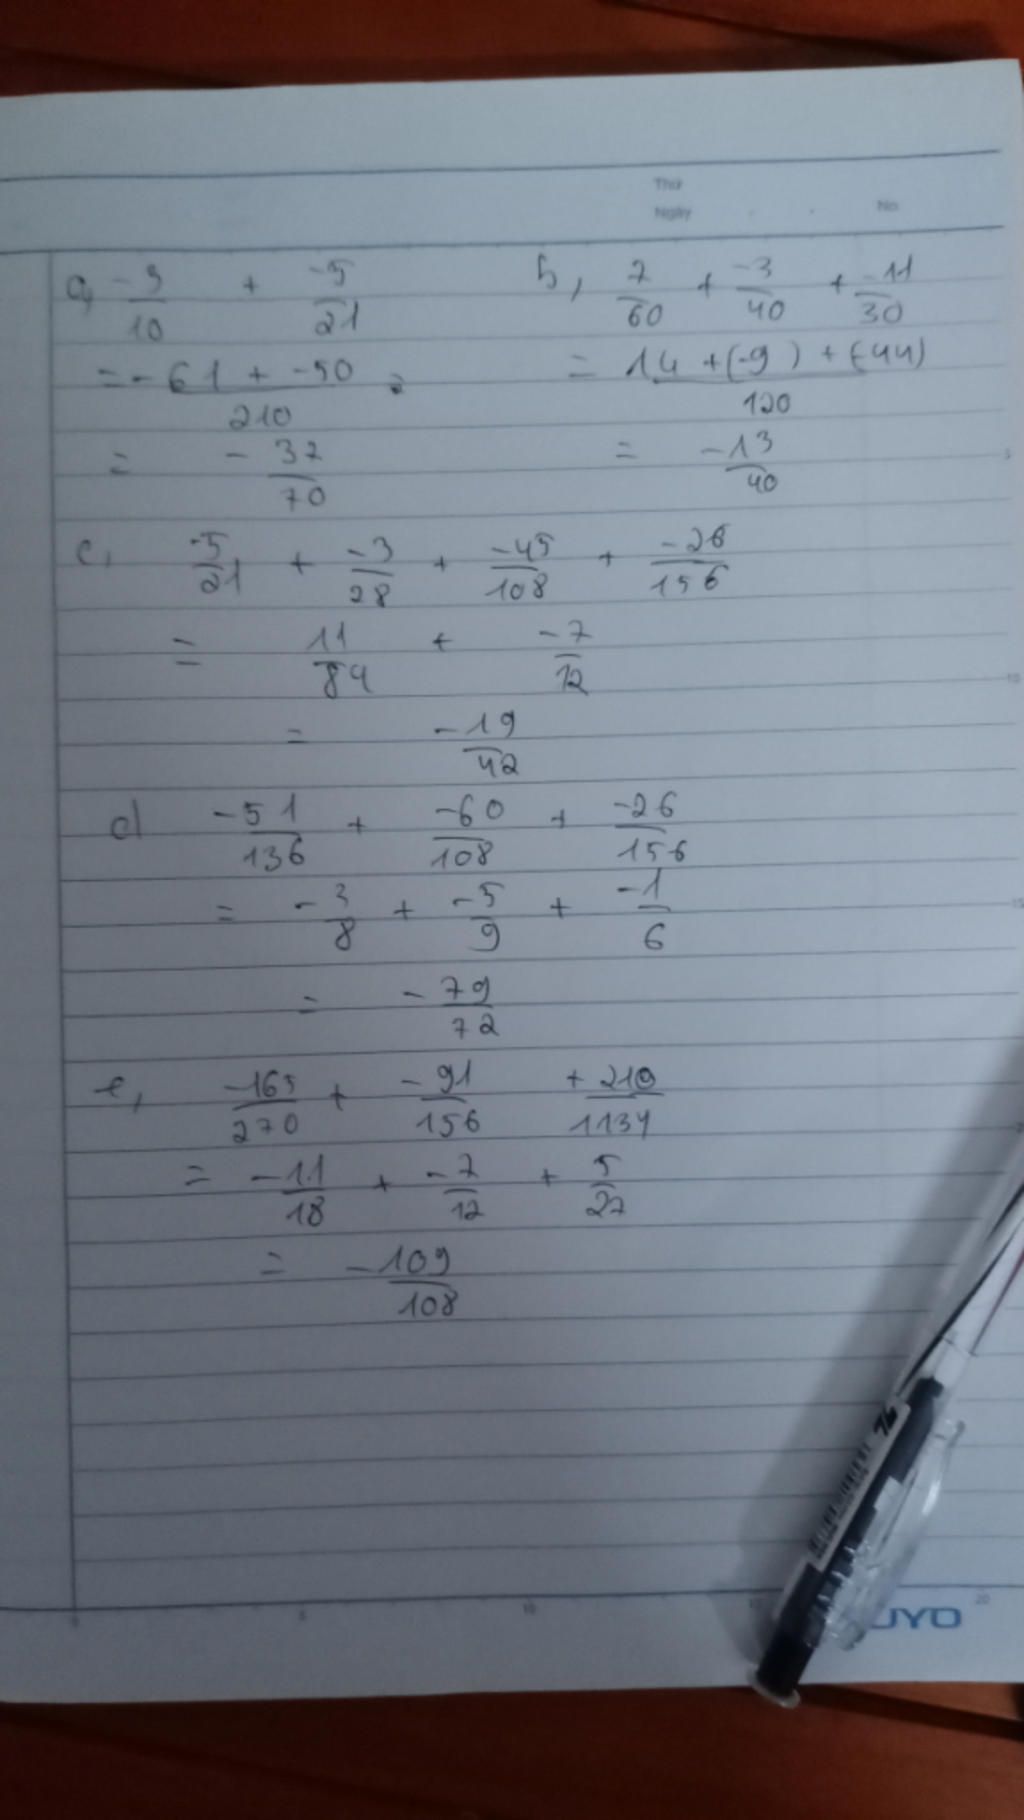 Thứ
Ngày . . No.
a, -3/10 + -5/21
= -61 + -50 / 210
= - 37/70
b, 7/60 + -3/40 + -11/30
= 14 + (-9) + (-44) / 120
= -13/40
c, -5/21 + -3/28 + -45/108 + -26/156
= 11/84 + -7/12
= -19/42
d -51/136 + -60/108 + -26/156
= -3/8 + -5/9 + -1/6
= -79/72
e, -165/270 + -91/156 + 210/1134
= -11/18 + -7/12 + 5/27
= -109/108
5
10
15
0 5 10 20